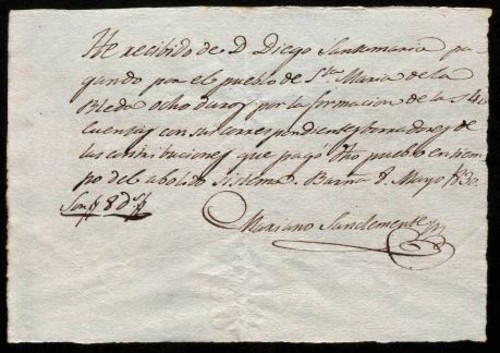 He recibido de D. Diego Santamaria pa-
gando por el pueblo de Sta. Maria de la
Bleda ocho duros por la formacion de las 40
Cuentas con sus correspondientes borradores de
las contribuciones que pagó dho pueblo en tiem-
po del abolido Sistema. Barna 8. Mayo 1830.
Son 8 ds.
Mariano Sanclemente